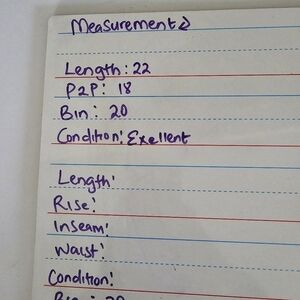 Measurement
Length: 22
P2P: 18
Bin: 20
Condition: Exellent
Length:
Rise:
Inseam:
Waist:
Condition:
Bin: 20